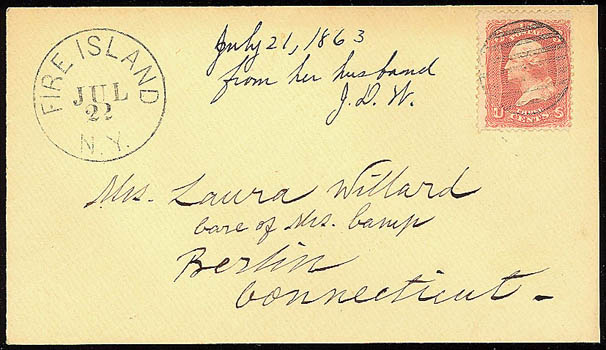 FIRE ISLAND
JUL
22
N.Y.
July 21, 1863
from her husband
J. D. W.
U CENTS S
Mrs. Laura Willard
Care of Mrs. Camp
Berlin
Connecticut -